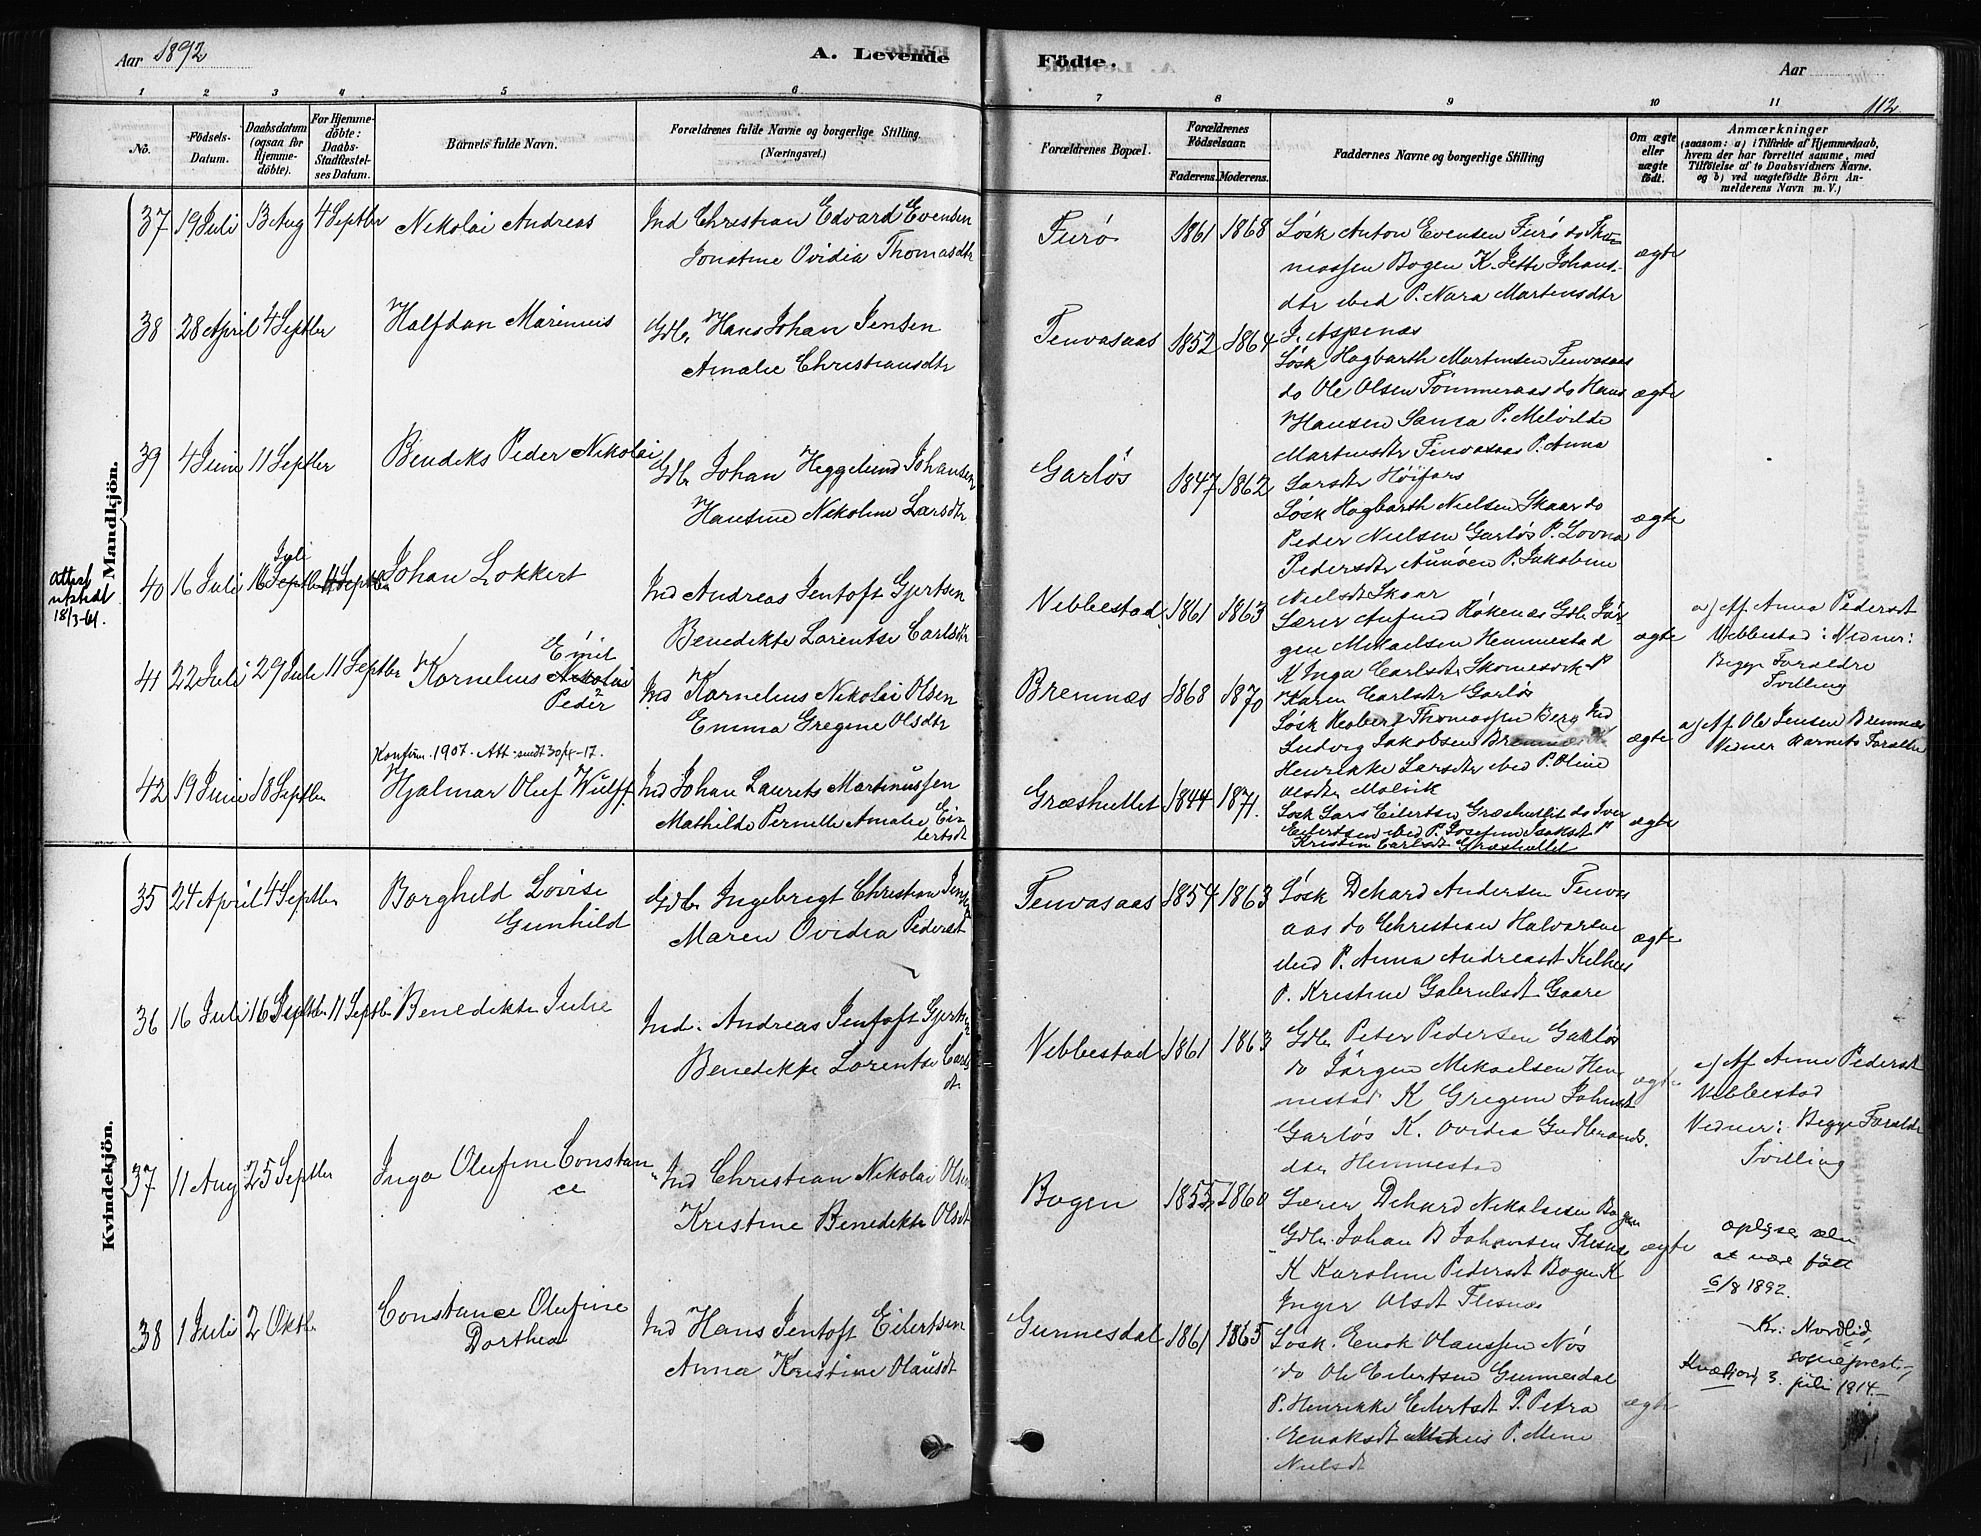 Aar 1892
A. Levende
Födte.
Aar
112
1 2 3 4 5 6 7 8 9 10 11
No.
Födsels-Datum.
Daabsdatum (ogsaa for Hjemme-döbte).
For Hjemme-döbte: Daabs-Stadfæstel-ses Datum.
Barnets fulde Navn.
Forældrenes fulde Navne og borgerlige Stilling. (Næringsvei.)
Forældrenes Bopæl.
Forældrenes Födselsaar.
Faderens. Moderens.
Faddernes Navne og borgerlige Stilling
Om ægte eller uægte födt.
Anmærkninger
(saasom: a) i Tilfælde af Hjemmedaab, hvem der har forrettet samme, med Tilföielse af to Daabsvidners Navne, og b) ved uægtefödte Börn An-melderens Navn m.V.)
Mandkjön.
37 19 Juli 13 Aug 4 Septbr Nikolai Andreas
Ind Christian Edvard Evensen
Jonstine Ovidia Thomasdtr
Furö 1861 1868
Løsk Anton Evensen Furö do Tho
massen Bogen K. Jette Johans
dtr ibid P. Nara Martensdtr
J. Aspenæs
ægte
38 28 April 4 Septbr Halfdan Marinius
Gdb. Hans Johan Jensen
Amalie Christiansdtr
Tenvasaas 1852 1864
Løsk Hagbarth Martinsen Tenvasaas
do Ole Olsen Tömmeraas do Hans
Hansen Sama P. Melvilde
Martinsdtr Tenvasaas P. Anna
Larsdtr Höifors
ægte
39 4 Juni 11 Septbr Bendiks Peder Nikolai
Gdb Johan Heggelund Johansen
Hansine Nikoline Larsdtr
Garlös 1847 1862
Løsk Hagbarth Nielsen Skaar do
Peder Nielsen Garlös P. Lovna
Pedersdtr Aunöen P. Jakobine
Nielsdtr Skaar
ægte
Attest utstedt 18/3-61
40 16 Juli 16 Juli 11 Septbr Johan Lokkert
Ind Andreas Jentoft Gjertsen
Benedikte Lorentse Carlsdtr
Vebbestad 1861 1863
Lærer Aufind Røkenes Gdb Jör
gen Mikaelsen Hemmestad
K Inga Carlsdtr Skomesvik P
Karen Carlsdtr Garlös
ægte
a) Af Anna Pedersdt
Vebbestad: Vidner:
Begge Foraldre
Tvilling
41 22 Juli 29 Juli 11 Septbr Kornelius Emil
Peder
Ind Kornelius Nikolai Olsen
Emma Gregine Olsdtr
Bremnæs 1868 1870
Løsk Thomassen Berg Ind
Ludvig Jakobsen Bremnæs K
Henrikke Larsdtr ibid P. Oline
Olsdtr Molvik
ægte
a) Af Ole Jensen Bremnæs
Vidner Barnets Foraldre
Konfirm. 1907. Att. sendt 30/8-17.
42 19 Juni 18 Septbr Hjalmar Oluf Wulff.
Ind Johan Laurits Martinussen
Mathilde Pernelle Amalie Ei
lertsdt
Græshullet 1844 1871.
Løsk Lars Eilertsen Græshullet do Iver
Eilertsen ibid P. Josefine Isaksdt P
Kristin Carlsdt Græshullet
ægte
Kvindekjön.
35 24 April 4 Septbr Borghild Lovise
Gunhild
Gdb Ingebrigt Christian Jensen
Maren Ovidia Pedersdt
Tenvasaas 1854 1863
Løsk Dehard Andersen Tenvas
aas do Christian Halvorsen
ibid P. Anna Andreasdt Kilhus
P. Kristine Gabrielsdt Gaare
ægte
36 16 Juli 16 Juli 11 Septbr Benedikte Julie
Ind. Andreas Jentoft Gjertsen
Benedikte Lorentse Carls
dtr
Vebbestad 1861 1863
Gdb Peter Pedersen Garlös
do Jörgen Mikaelsen Hem
mestad K Gregine Johnsdt
Garlös K. Ovidia Gudbrands
dtr Hemmestad
ægte
a) Af Anna Pedersdt
Vebbestad
Vidner: Begge Foraldre
Tvilling
37 11 Aug 25 Septbr Inga Olufine Constan
ce
Ind Christian Nikolai Olsen
Kristine Benedikte Olsdt
Bogen 1855 1860
Lærer Dehard Nikolaisen Bogen
Gdb. Johan B Johansen Flesnæs
K Karoline Pedersdt Bogen K
Inger Olsdt Flesnæs
ægte
oplyses selv
at være födt
6/8 1892.
Kr: Nordlid,
sogneprest.
Kvæfjord 3. juli 1914.
38 1 Juli 2 Oktbr Constance Olufine
Dorthea
Ind Hans Jentoft Eilertsen
Anna Kristine Olausdt
Gunnesdal 1861 1865
Løsk. Enok Olaussen Nös
do Ole Eilertsen Gunnesdal
P. Henrikke Eilertsdt P. Petra
Enoksdt P. Mine
Nielsdt
ægte